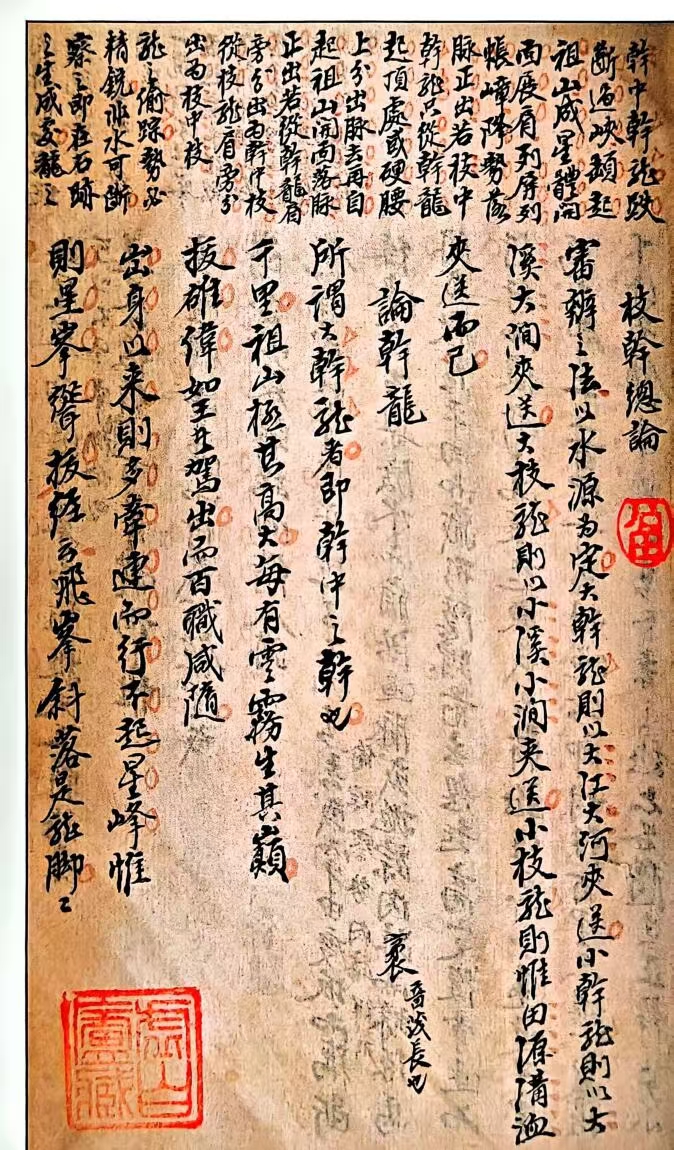 幹中幹龍跌
断過峽頓起
祖山成星體開
面展肩列屏列
帳嶂降勢落
脉正出若枝中
幹龍只從幹龍
起頂處或硬腰
上分出脉去再自
起祖山開面落脉
正出若從幹龍肩
旁分出為幹中枝
從枝龍肩旁分
出為枝中枝
龍之偷踪勢必
精銳非水可斷
察之即在石跡
之生成變龍之
枝幹總論
審辨之法以水源为定大幹龍則以大江大河夾送小幹龍則以大
溪大澗夾送大枝龍則以小溪小澗夾送小枝龍則惟田源溝洫
夾送而已
論幹龍
所謂大幹龍者即幹中之幹也
千里祖山極其高大每有雲霧生其巔
拔雄偉如王者駕出而百職咸隨
出身以来則多牽連而行不起星峰惟
則星峯聳拔經云飛峯斜落是龍脚〻
音茂長也
虛白廬藏